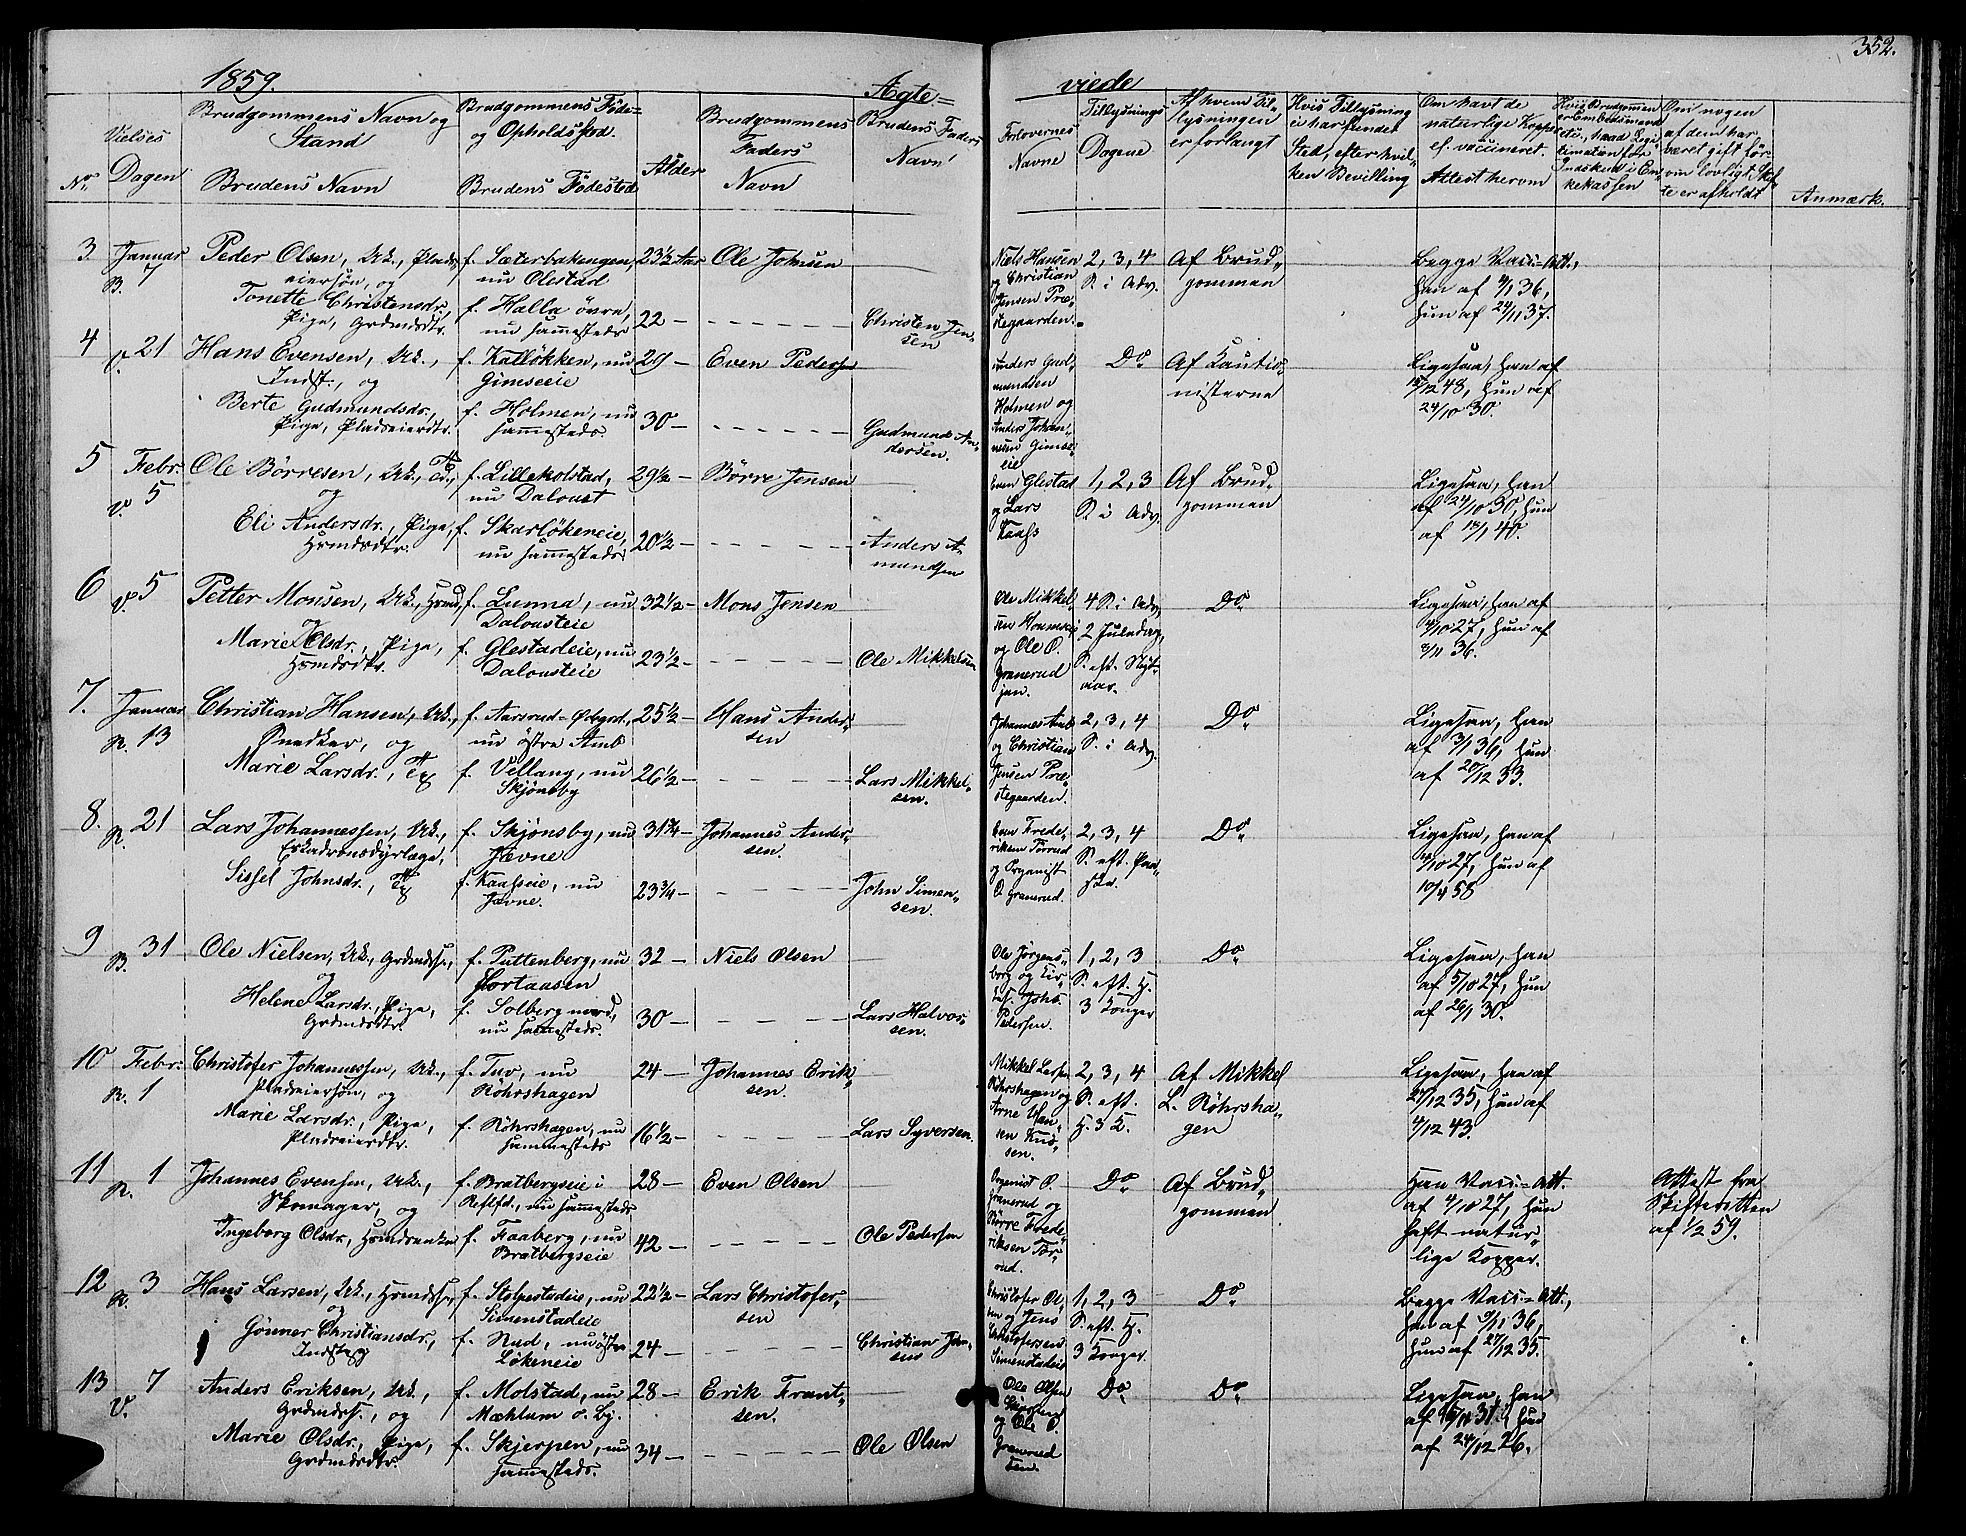 352.
1859.
Ægte=
viede
No.
Vielses
Dagen
Brudgommens Navn og
Stand
Brudens Navn
Brudgommens Føde=
og Opholdssted.
Brudens Fødested
Alder
Brudgommens
Faders
Navn
Brudens Faders
Navn
Forlovernes
Navne
Tillysnings
Dagene
Af hvem Til-
lysningen
er forlangt
Hvis Tillysning
ei har fundet
Sted, efter hvil-
ken Bevilling
Om havt de
naturlige Kopper
el. vaccineret.
Attest herom
Hvis Brudgommen
er Embedsmand
etc., hvad Legi-
timation for
Indskud i En-
kekassen
Om nogen
af dem har
været gift før,
om lovligt Skif-
te er afholdt
Anmærk.
3 Januar
B. 7
Peder Olsen, Uk., Plads-
eiersøn, og
Tonette Christensdr.,
Pige, Grdmdsdtr.
f. Sæterbakengen,
nu Olestad
f. Halla övre,
nu sammesteds
23½ Aar
22 —
Ole Johnsen
Christen Jen-
sen
Niels Hansen
og Christian
Jensen Præ-
stegaarden.
2, 3, 4
S. i Adv.
Af Brud-
gommen
Begge Vacc.=Att.,
han af 4/1 36,
hun af 24/11 37.
4 V. 21
Hans Evensen, Uk.,
Indst., og
Berte Gudmundsdr.,
Pige, Pladseierdtr.
f. Kalløkken, nu
Gimseeie
f. Holmen, nu
sammesteds.
29 —
30 —
Even Pedersen
Gudmund An-
dersen.
Anders Gud-
mundsen
Holmen og
Anders Johan-
nesen Gimse-
eie
Do
Af Kautio-
nisterne
Ligesaa, han af
12/12 48, hun af
24/10 30.
5 Febr.
V. 5
Ole Börresen, Uk.,
og
Eli Andersdr., Pige,
Hsmdsdtr.
f. Lillekolstad,
nu Daloust
f. Skarløkeneie,
nu sammesteds
29½ —
20½ —
Börre Jensen
Anders A-
mundsen
Even Glestad
og Lars
Kaass
1, 2, 3
S. i Adv.
Af Brud-
gommen
Ligesaa, han
af 24/10 30, hun
af 18/1 40.
6 V. 5
Petter Monsen, Uk., Hsmd,
og
Marie Olsdr., Pige,
Hsmdsdtr.
f. Lunna, nu
Dalousteie
f. Glestadeie, nu
Dalousteie
32½ —
23½ —
Mons Jensen
Ole Mikkelsen
Ole Mikkel-
sen
og Ole O.
Granerud
jun.
4 S. i Adv,
2 Juledag,
S. eft. Nyt-
aar.
Do
Ligesaa, han af
4/10 27, hun af
3/11 36.
7. Januar
R. 13
Christian Hansen, Uk.,
Snedker, og
Marie Larsdr.,
f. Aarsrud-Ødegrd.,
nu østre Amb
f. Vellang, nu
Skjönsby
25½ —
26½ —
Hans Ander-
sen
Lars Mikkel-
sen.
Johannes Amb
og Christian
Jensen Præ-
stegaarden.
2, 3, 4
S. i Adv.
Do
Ligesaa, han
af 3/1 36, hun
af 20/12 33.
8. R. 21
Lars Johannessen, Uk.,
Eskadronsdyrlæge,
Sissel Johnsdr.,
f. Skjönsby, nu
Jevne
f. Kaasseie, nu
Jevne.
31¾ —
23¾ —
Johannes Ander-
sen.
John Simen-
sen.
Even Frede-
riksen Törrud
og Organist
O. Granerud.
2, 3, 4
S. eft. Paa-
ske.
Do
Ligesaa, han af
4/10 27, hun af
10/4 58
9 B. 31
Ole Nielsen, Uk., Grdmdss.,
og
Helene Larsdr., Pige,
Grdmdsdtr.
f. Puttenberg, nu
Hortaasen
f. Solberg nord,
nu sammesteds.
32 —
30 —
Niels Olsen
Lars Halvor-
sen.
Ole Jörgens-
borg og Kir-
Johs.
Pedersen.
1, 2, 3
S. eft. H.
3 Konger
Do
Ligesaa, han
af 5/10 27, hun
af 26/1 30.
10 Febr.
R. 1
Christofer Johannessen, Uk.,
Pladseiersøn, og
Marie Larsdr., Pige,
Pladseierdtr.
f. Tuv, nu
Röhrshagen
f. Röhrshagen, nu
sammesteds
24 —
16½ —
Johannes Erik-
sen.
Lars Syversen.
Mikkel Larsen
Röhrshagen og
Arne Han-
sen Knu-
sen.
2, 3, 4
S. eft.
H. 3 K.
Af Mikkel
L. Röhrsha-
gen
Ligesaa, han af
27/12 35, hun af
4/12 43.
11 R. 1
Johannes Evensen, Uk.,
Skomager, og
Ingeborg Olsdr., Hsmdsenke
f. Bratbergseie i
nu sammesteds
f. Faaberg, nu
Bratbergseie
28 —
42 —
Even Olsen
Ole Pedersen
Organist O.
Granerud og
Börre Frede-
riksen Tör-
rud.
Do
Af Brud-
gommen
Han Vacc.=Att.
af 4/10 27, hun
haft natur-
lige Kopper.
Attest fra
Skifteretten
af 1/2 59.
12 R. 3
Hans Larsen, Uk., Hsmdss.,
og
Gönner Christiansdr.,
Indstpg
f. Stolpestadeie, nu
Simenstadeie
f. Rud, nu østre
Lökeneie
22½ —
24 —
Lars Christofer-
sen
Christian Jen-
sen
Christofer Ol-
sen og Jens
Christofersen
Simenstadeie
1, 2, 3
S. eft. H.
3 Konger.
Do
Begge Vacc.=Att.,
han af 9/11 36,
hun af 27/12 35.
13 V. 7
Anders Eriksen, Uk.,
Grdmdss., og
Marie Olsdr., Pige,
Grdmdsdtr.
f. Molstad, nu
Mæhlum o. bg.
f. Skjerpen, nu
sammesteds.
28 —
34 —
Erik Frant-
sen.
Ole Olsen
Ole Olsen
og Ole O.
Granerud
sen.
Do
Do
Ligesaa, han
af 15/11 31, hun
af 24/12 26.